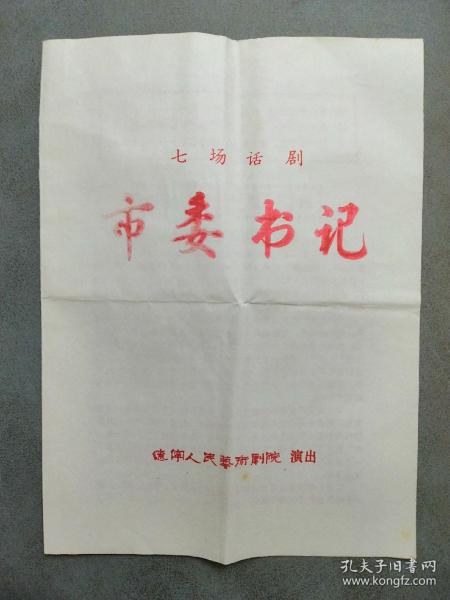 七场话剧
市委书记
辽宁人民藝術剧院 演出
孔夫子旧书网
www.kongfz.com